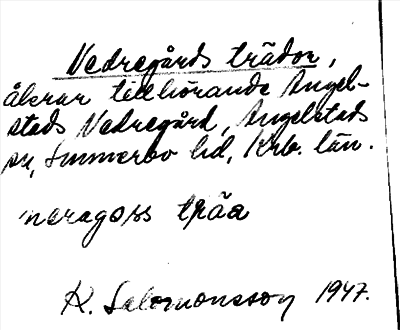 Nedregårds trädor,
åkrar tillhörande Angel-
stads Nedregård, Angelstads
sn, Sunnerbo hd, Krb. län.
neragoss träa
K. Salomonsson 1947.